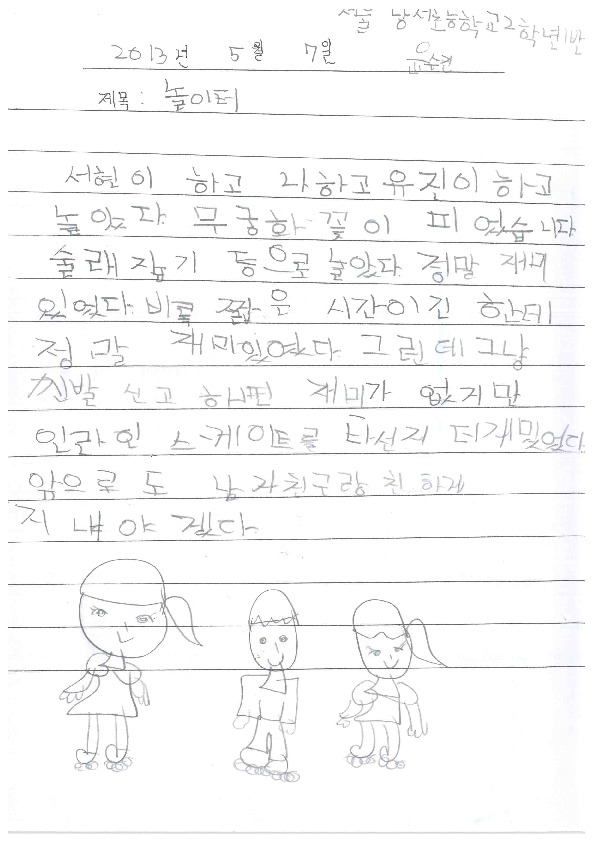 서울 남서초등학교2학년1반
2013년 5월 7일 윤수현
제목: 놀이터
서현이 하고 나하고 유진이 하고
놀았다 무궁화 꽃이 피었습니다
술래잡기 등으로 놀았다 정말 재미
있었다 비록 짧은 시간이긴 한데
정말 재미있었다 그런데 그냥
신발 신고 하며면 재미가 없지만
인라인 스케이트를 타선지 더재밌었다
앞으로도 남자친구랑 친하게
지내야 겠다